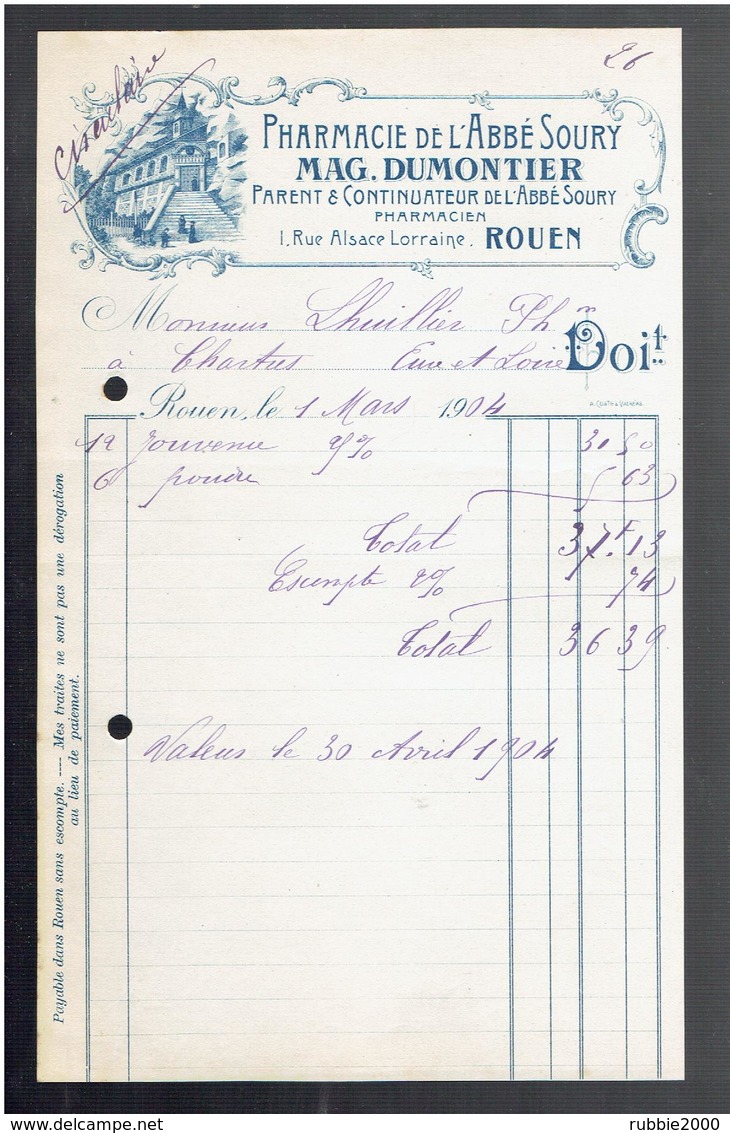 26
PHARMACIE DE L'ABBÉ SOURY
MAG. DUMONTIER
PARENT & CONTINUATEUR DE L'ABBÉ SOURY
PHARMACIEN
1, Rue Alsace Lorraine. ROUEN
Monsieur Lhuillier Phn
à Chartres Eure et Loire Doit
Rouen, le 1 Mars 1904
12 Jouvence % 31 50
6 poudre 5 63
Total 37f.13
Escompte 2% 74
Total 36 39
Valeur le 30 Avril 1904
Payable dans Rouen sans escompte. ---- Mes traites ne sont pas une dérogation
au lieu de paiement.
rubbie2000